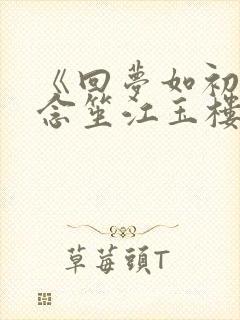 《回夢如初
念笙江玉樓
草莓頭T